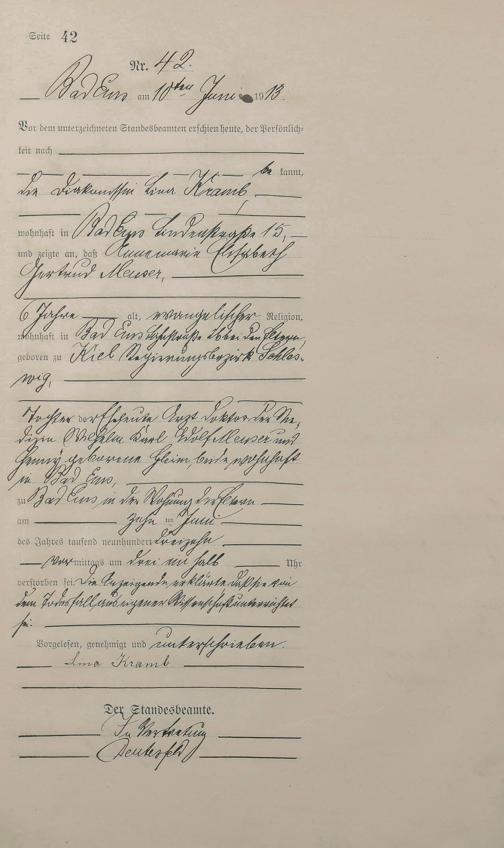 Seite 42
Nr. 42.
Bad Ems am 10ten Juni 1913.
Vor dem unterzeichneten Standesbeamten erschien heute, der Persönlich-
keit nach
be kannt,
die Diakonissin Lina Kramb,
wohnhaft in Bad Ems Lindenstraße 15,
und zeigte an, daß Annemarie Elisabeth
Gertrud Meuser,
6 Jahre alt, evangelischer Religion,
wohnhaft in Bad Ems bei den Eltern,
geboren zu Kiel Regierungsbezirk Schles-
wig,
Tochter der Eheleute Arzt Doktor der Me-
dizin Wilhelm Karl Adolf Meuser und
Henny geborene Heim, beide wohnhaft
in Bad Ems,
zu Bad Ems in der Wohnung der Eltern
am zehn ten Juni
des Jahres tausend neunhundert dreizehn
vor mittags um drei ein halb Uhr
verstorben sei. Die Anzeigende erklärte daß sie von
dem Todesfall aus eigener Wissenschaft unterrichtet
sei.
Vorgelesen, genehmigt und unterschrieben.
Lina Kramb
Der Standesbeamte.
In Vertretung